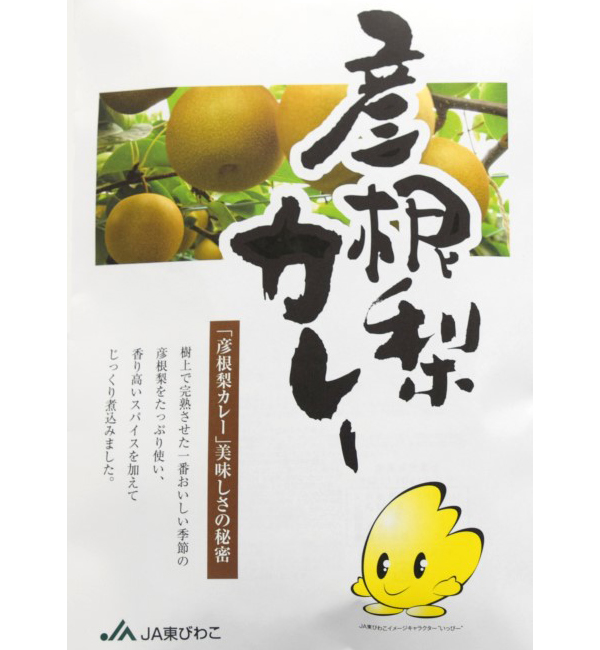 彦根梨
カレー
「彦根梨カレー」美味しさの秘密
樹上で完熟させた一番おいしい季節の
彦根梨をたっぷり使い、
香り高いスパイスを加えて
じっくり煮込みました。
JA東びわこイメージキャラクター"いっぴー"
JA東びわこ